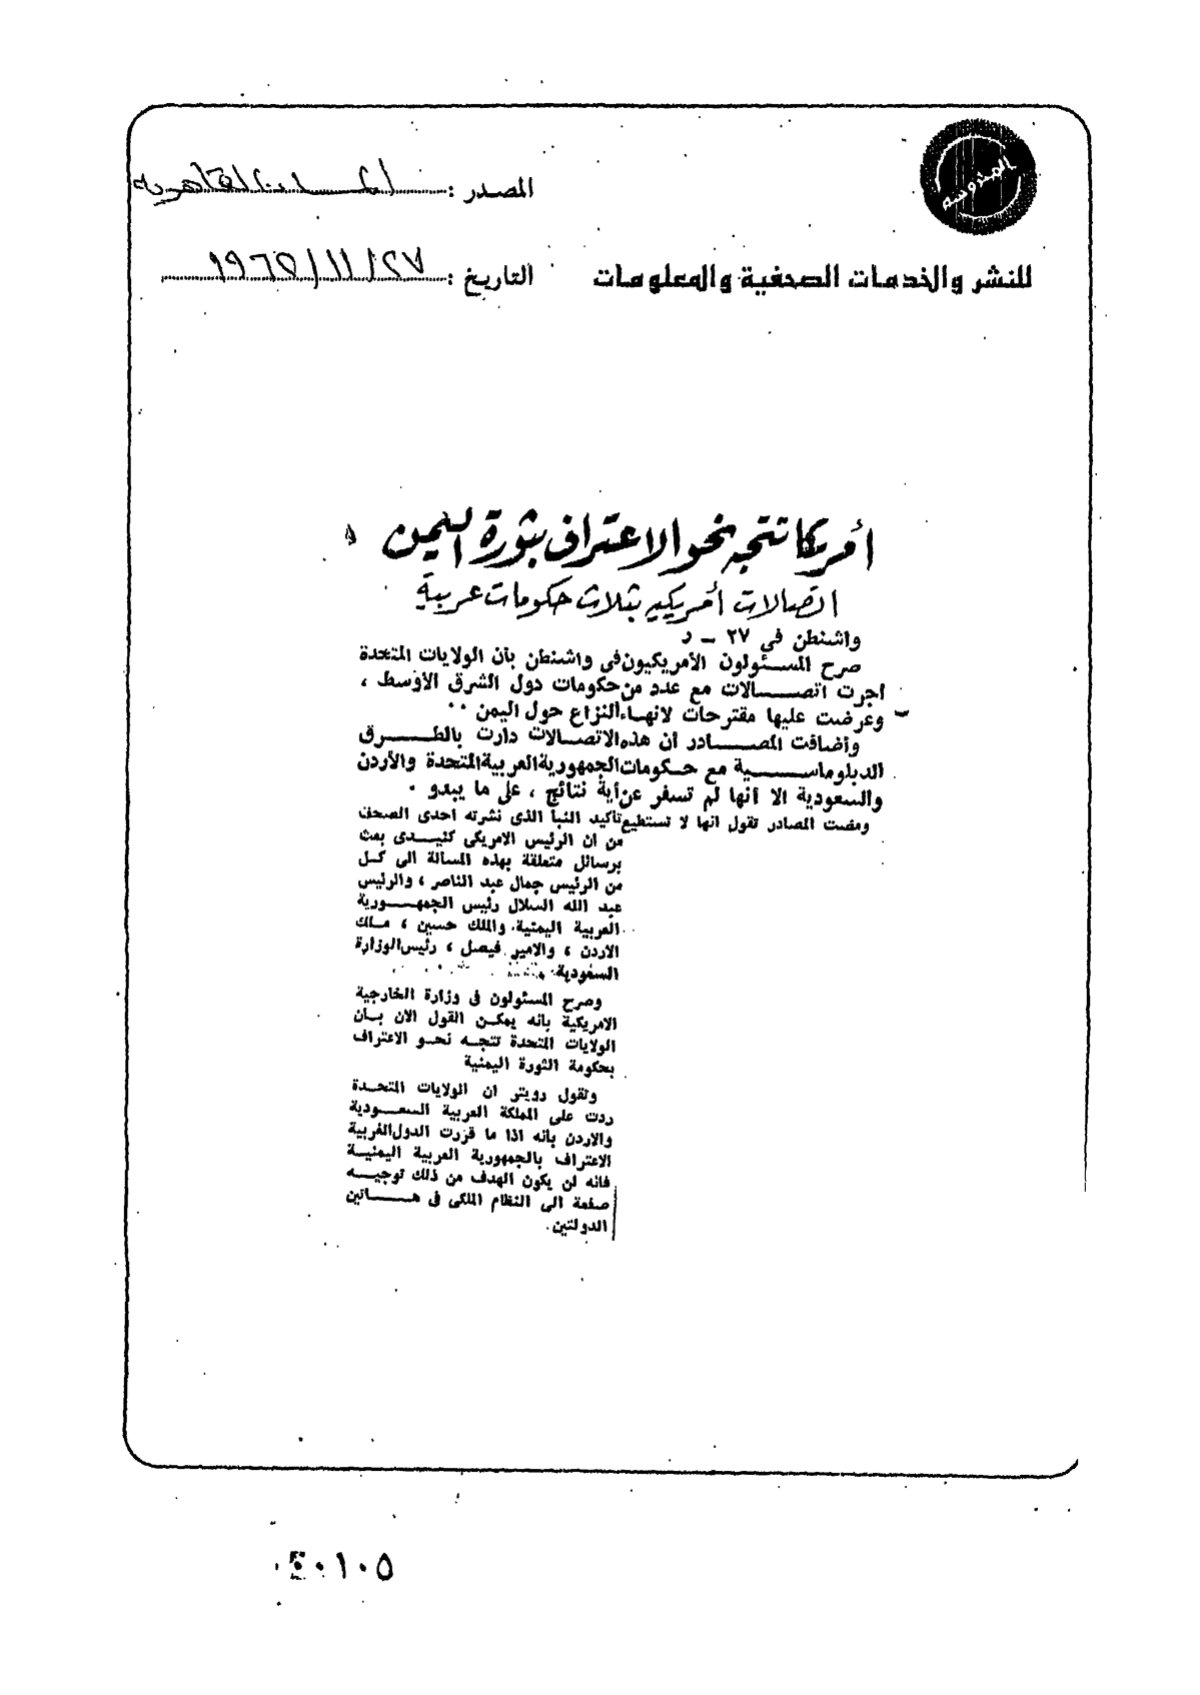 المحروسة
للنشر والخدمات الصحفية والمعلومات
المصدر : القاهرية
التاريخ : ٢٧/١١/١٩٦٥
أمريكا تتجه نحو الاعتراف بثورة اليمن
اتصالات أمريكية بثلاث حكومات عربية
واشنطن في ٢٧ - ر
صرح المسئولون الأمريكيون في واشنطن بأن الولايات المتحدة
اجرت اتصالات مع عدد من حكومات دول الشرق الأوسط ،
وعرضت عليها مقترحات لانهاء النزاع حول اليمن ..
وأضافت المصادر أن هذه الاتصالات دارت بالطرق
الدبلوماسية مع حكومات الجمهورية العربية المتحدة والأردن
والسعودية الا أنها لم تسفر عن أية نتائج ، على ما يبدو .
ومضت المصادر تقول انها لا تستطيع تأكيد النبأ الذى نشرته احدى الصحف
من ان الرئيس الامريكى كنيدى بعث
برسائل متعلقة بهذه المسألة الى كل
من الرئيس جمال عبد الناصر ، والرئيس
عبد الله السلال رئيس الجمهورية
العربية اليمنية، والملك حسين ، ملك
الاردن ، والامير فيصل ، رئيس الوزارة
السعودية.
وصرح المسئولون فى وزارة الخارجية
الامريكية بأنه يمكن القول الان بان
الولايات المتحدة تتجه نحو الاعتراف
بحكومة الثورة اليمنية
وتقول رويتر ان الولايات المتحدة
ردت على المملكة العربية السعودية
والاردن بأنه اذا ما قررت الدول الغربية
الاعتراف بالجمهورية العربية اليمنية
فانه لن يكون الهدف من ذلك توجيه
صفعة الى النظام الملكى فى هاتين
الدولتين.
٠١٠٥